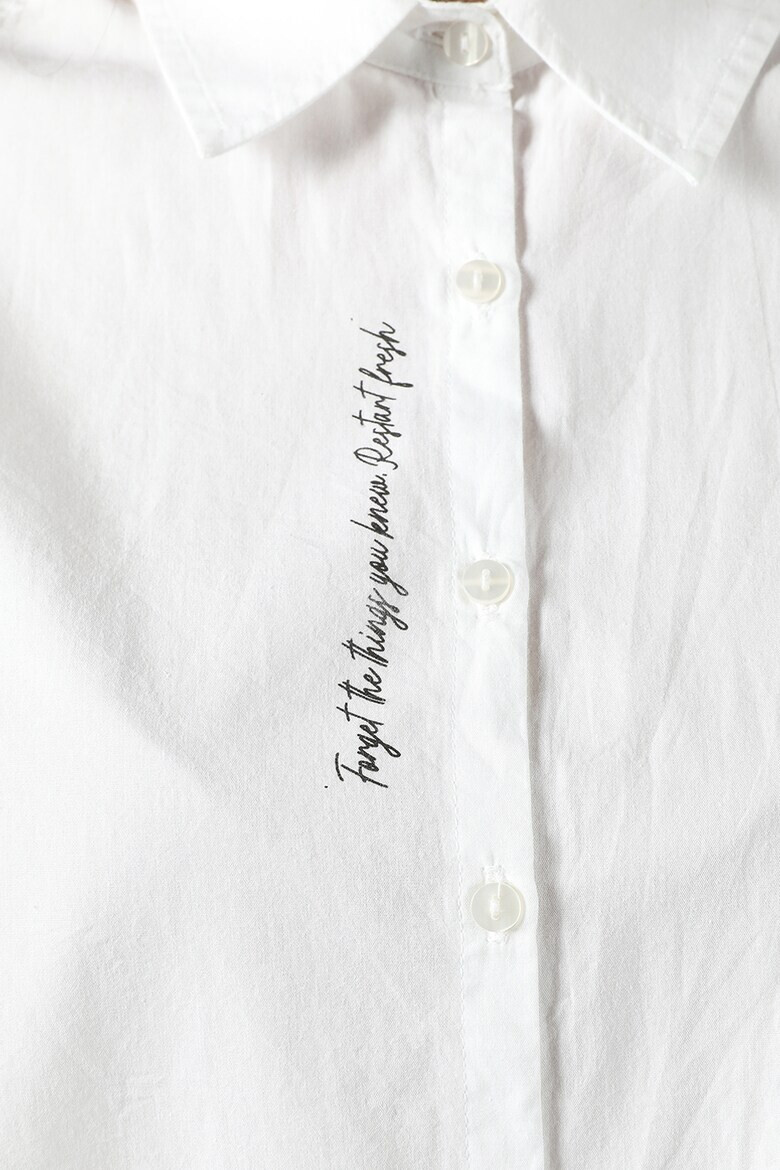 Forget the things you knew. Restart fresh